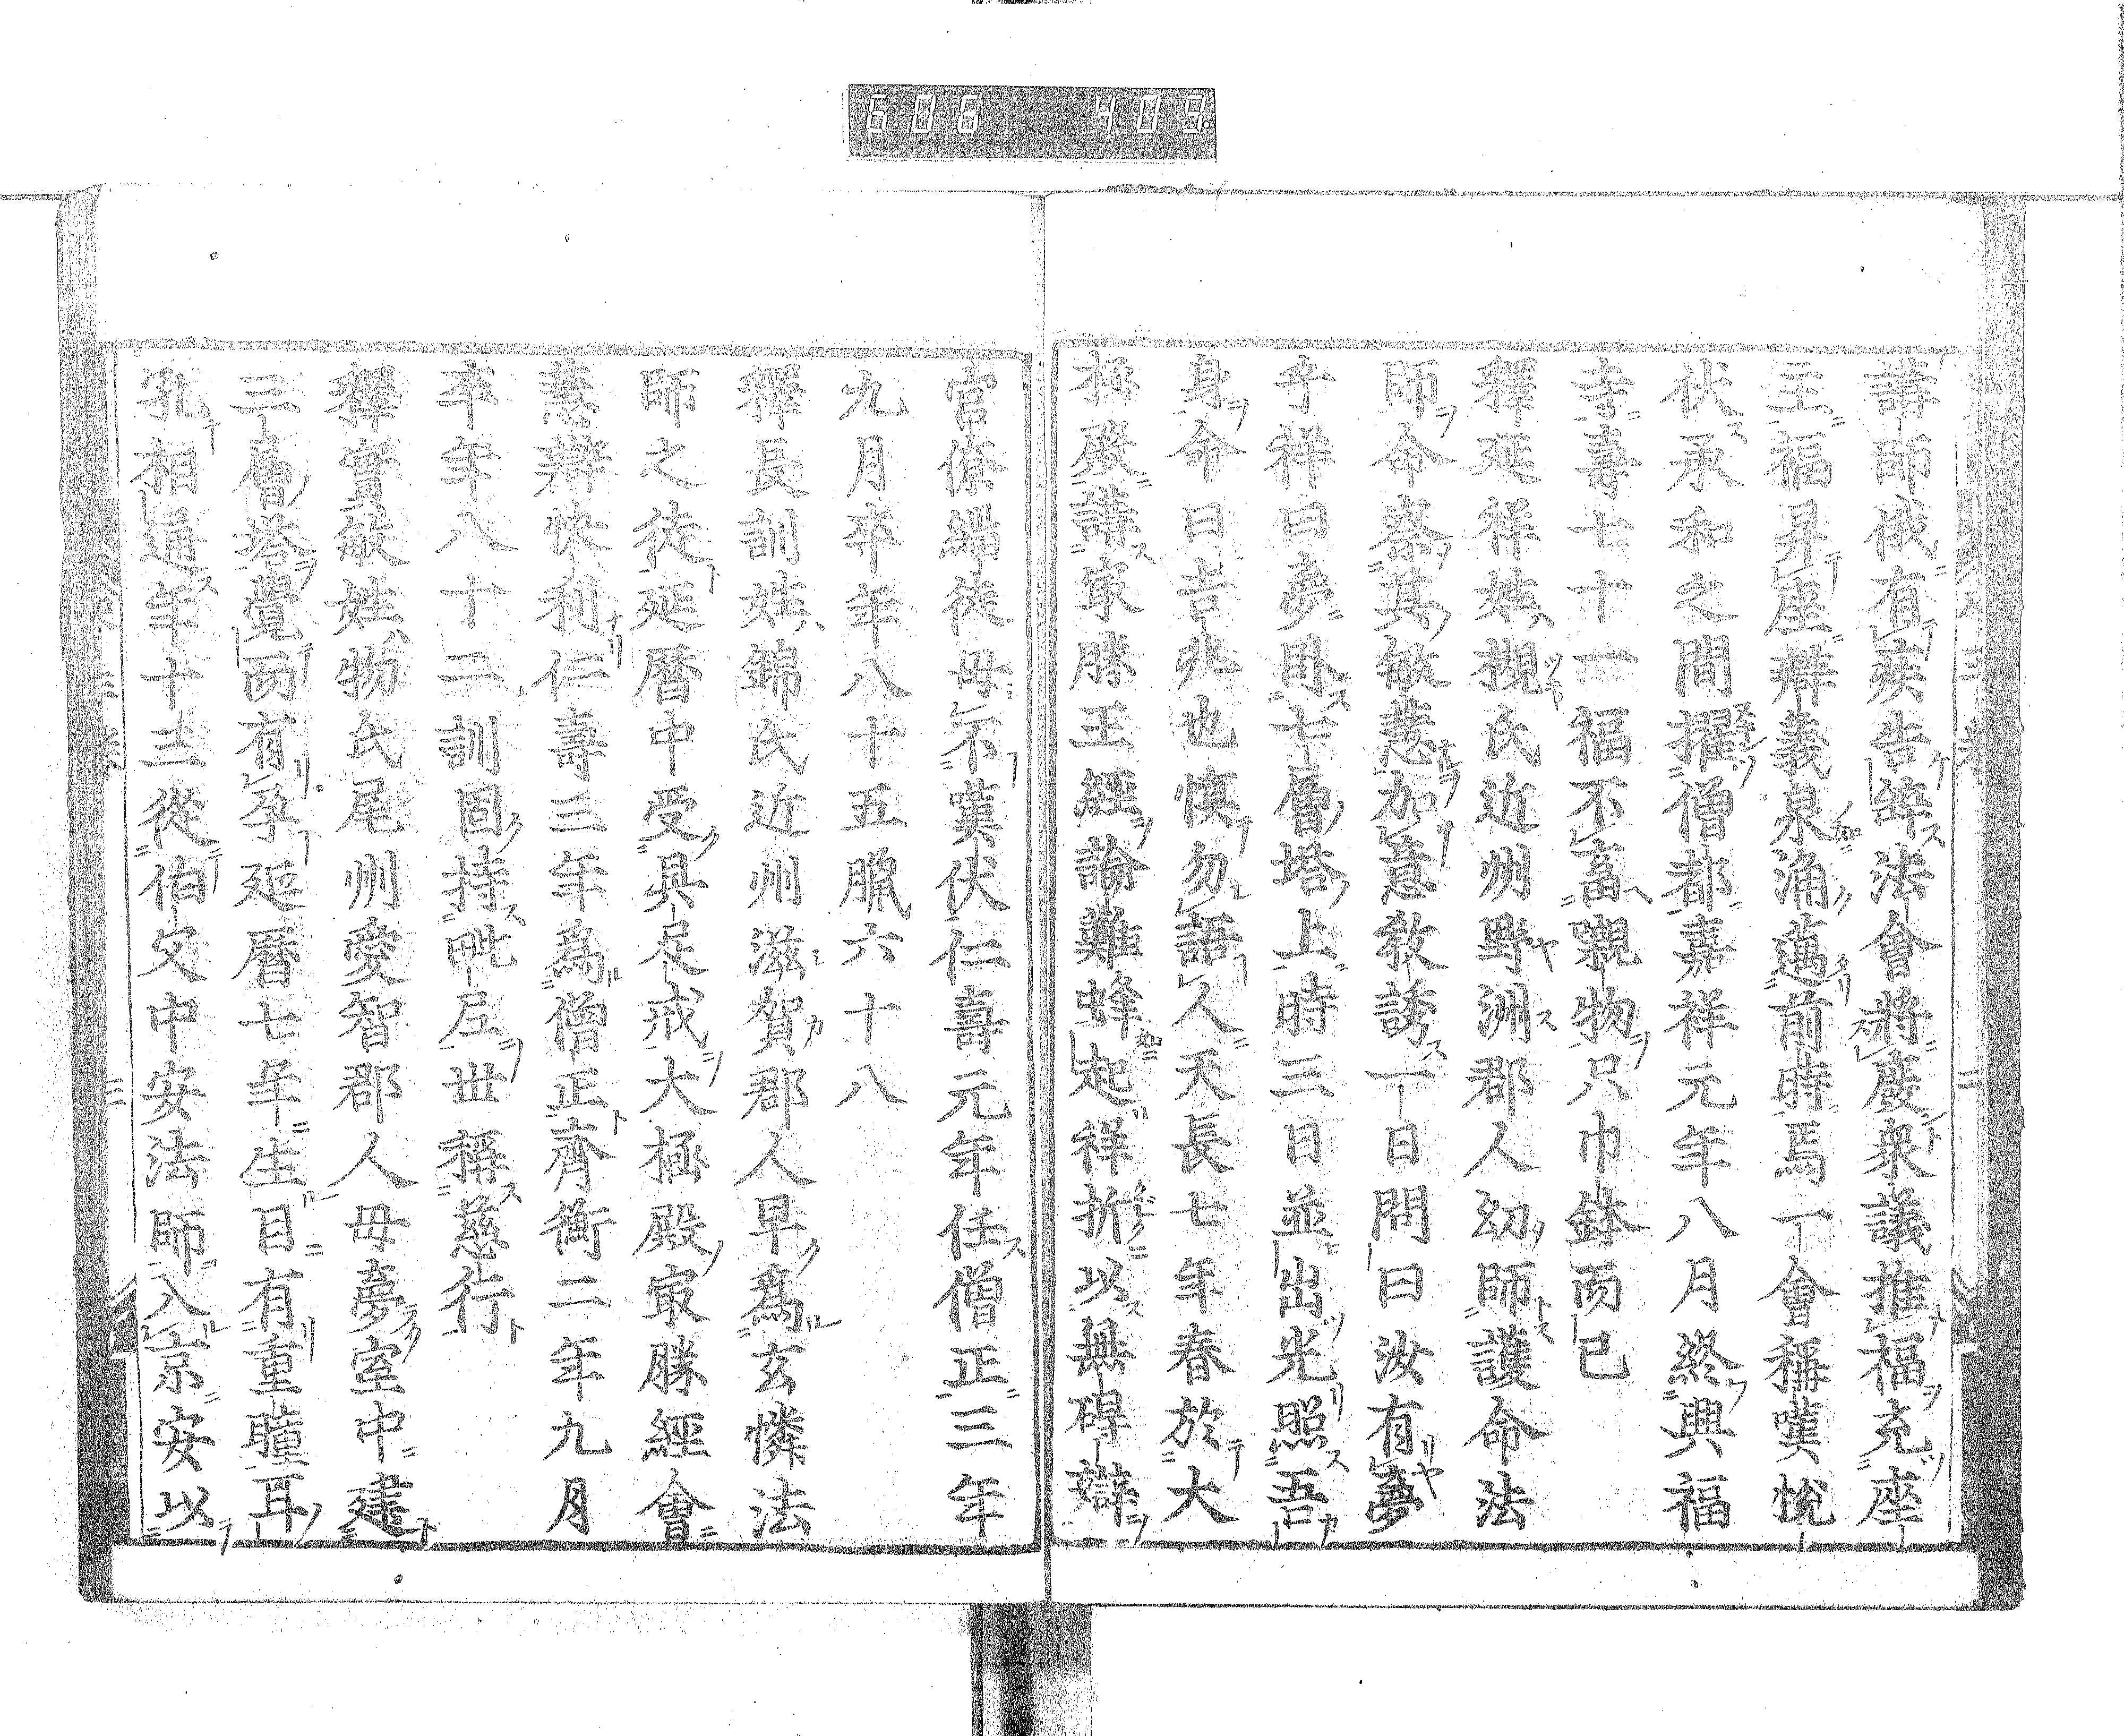 606 409
講師俄有疾告辭法會將廢衆議推福充座
主福昇座辯義泉涌邁前時焉一會稱嘆悅
伏承和之間擢僧都嘉祥元年八月終興福
寺壽七十一福不畜䞋物只巾鉢而已
釋延祥姓槻氏近州野洲郡人幼師護命法
師命察其敏慧加意教誘一日問曰汝有夢
乎祥曰夢臥七層塔上時三日並出光照吾
身命曰吉兆也慎勿語人天長七年春於大
極殿講㝡勝王經論難蜂起祥折以無碍辯
官僚緇徒毋不嘆伏仁壽元年任僧正三年
九月卒年八十五臘六十八
釋長訓姓錦氏近州滋賀郡人早爲玄憐法
師之徒延曆中受具足戒大極殿㝡勝經會
慧辯快利仁壽三年爲僧正齊衡二年九月
卒年八十二訓固持毗尼世稱慈行
釋實敏姓物氏尾州愛智郡人毋夢室中建
三層塔覺而有孕延曆七年生目有重瞳耳
孔相通年十三從伯父中安法師入京安以